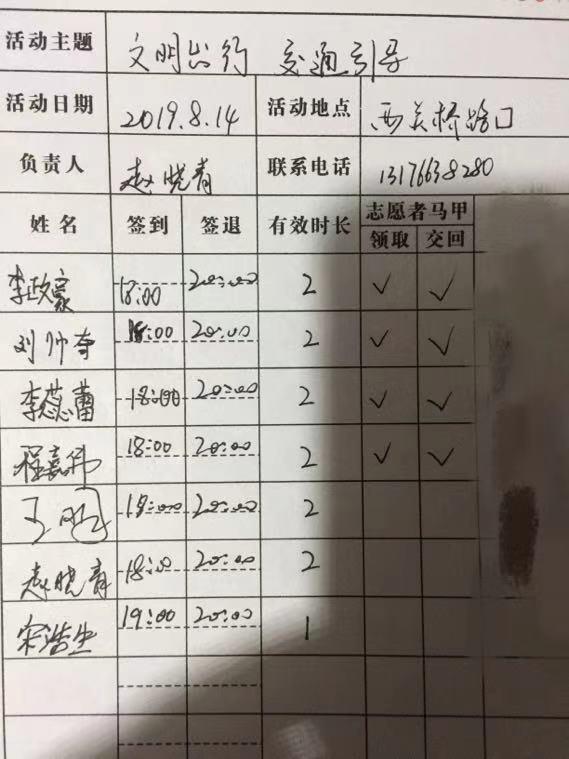 活动主题 文明出行 交通引导
活动日期 2019.8.14 活动地点 西关桥路口
负责人 赵晓青 联系电话 13176638280
姓名 签到 签退 有效时长 志愿者马甲
领取 交回
李政豪 18:00 20:00 2 ✓ ✓
刘帅奇 18:00 20:00 2 ✓ ✓
李蕊蕾 18:00 20:00 2 ✓ ✓
程嘉伟 18:00 20:00 2 ✓ ✓
王 18:00 20:00 2
赵晓青 18:00 20:00 2
宋浩生 19:00 20:00 1